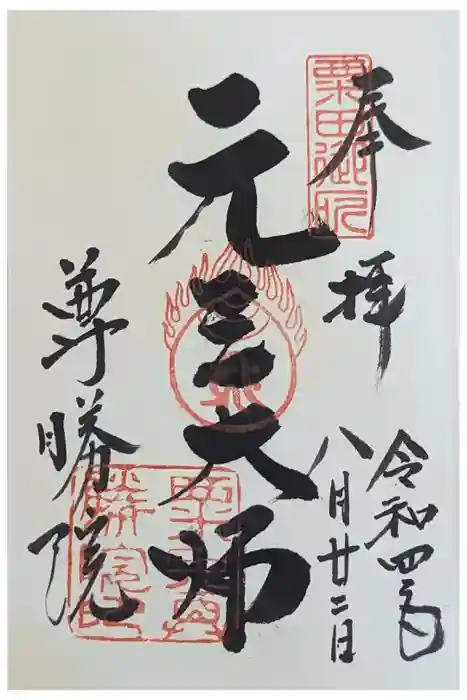 奉拝
令和四年
八月廿二日
粟田御所
元三大師
尊勝院